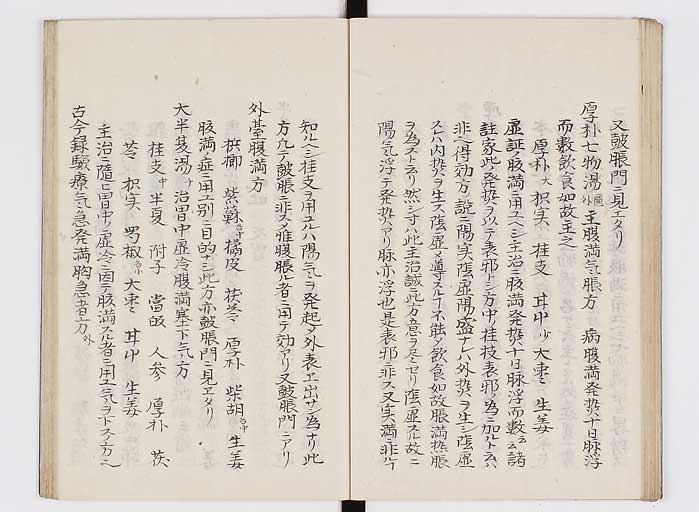 又皷脹門ニ見エタリ
厚朴七物湯 主腹満气脹方 病腹満発熱十日脉浮
而數飲食如故主之
厚朴大 枳実 桂支 甘中 大枣 生姜
虚証腹満ニ用ユヘシ主治ニ腹満発熱十日脉浮而數云諸
註家此発熱ヲ以テ表邪トシ方中ノ桂枝表邪ノ為ニ加ルト云ハ
非也得効方ノ説ニ陽実陰虚陽盛ナレハ外熱ヲ生シ陰虚
スレハ内熱ヲ生ス陰虚メ導スル不能ノ飲食如故脹満热脹
ヲ為ストアリ然シハ此主治誠ニ此方ノ意ヲ尽セリ陰虚スル故ニ
陽气浮テ発熱アリ脉亦浮也是表邪ニ非ス又実満ニ非ル
知ルヘシ桂支ヲ用ユルハ陽气ヲ発起メ外表エ出サン為ナリ此
方凡テ皷脹ニ非ス唯腹脹ル者ニ用テ効アリ又皷脹門ニアリ
外臺腹満方
梹榔 紫蘇 橘皮 茯苓 厚朴 柴胡 生姜
腹満ノ症ニ用ユ別ニ目的ナシ此方亦皷脹門ニ見エタリ
大半夏湯 治胃中虚冷腹満塞下气方
桂支 半夏 附子 當皈 人参 厚朴 茯
苓 枳実 蜀椒 大枣 甘中 生姜
主治ニ随ヒ胃中ノ虚冷ニ因テ腹満スル者ニ用ユ气ヲ下ス方也
古今録驗療气急発満胸急者方外